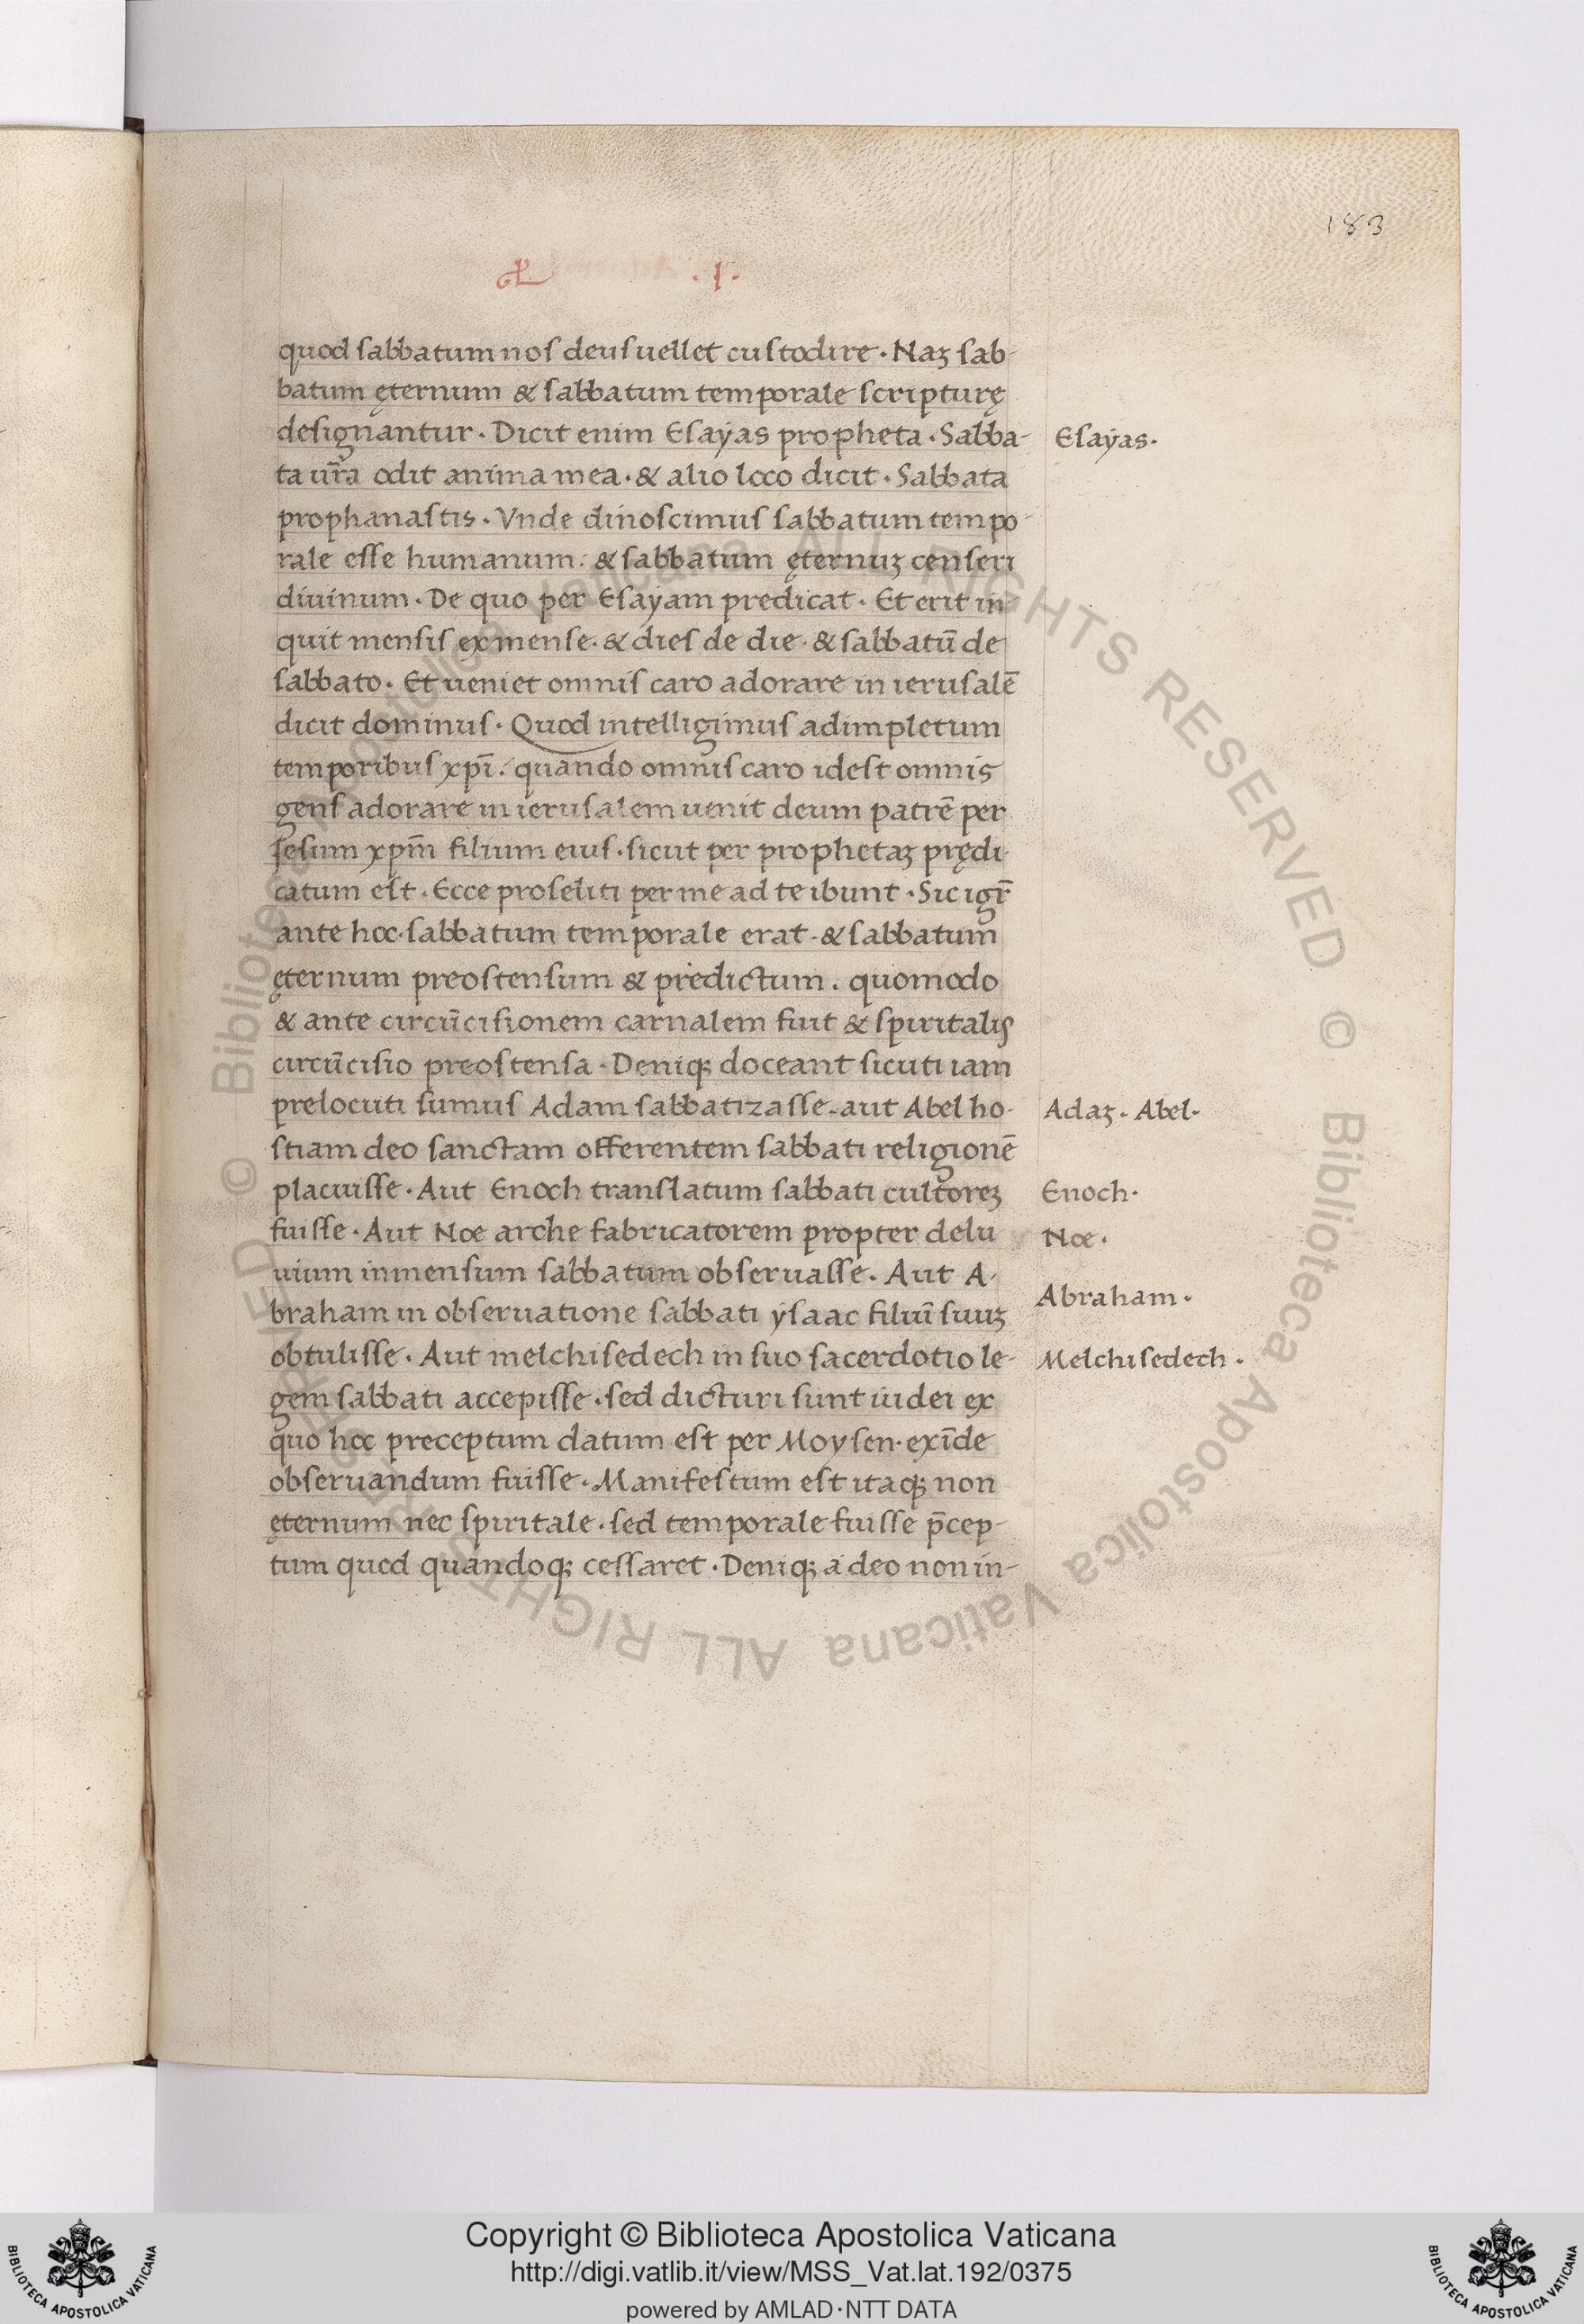 183
.I.
quod sabbatum nos deus uellet custodire. Naʒ sab-
batum ęternum & sabbatum temporale scripturę
designantur. Dicit enim Esaÿas propheta. Sabba-
ta ur̄a odit anima mea. & alio loco dicit. Sabbata
prophanastis. Vnde dinoscimus sabbatum tempo-
rale esse humanum: & sabbatum ęternuʒ censeri
diuinum. De quo per Esaÿam predicat. Et erit in-
quit mensis ex mense. & dies de die. & sabbatū de
sabbato. Et ueniet omnis caro adorare in ierusalē
dicit dominus. Quod intelligimus adimpletum
temporibus xpī. quando omnis caro idest omnis
gens adorare in ierusalem uenit deum patrē per
Jesum xpm̄ filium eius. sicut per prophetaʒ prędi-
catum est. Ecce proseliti per me ad te ibunt. Sic igr̄
ante hoc sabbatum temporale erat. & sabbatum
ęternum preostensum & predictum. quomodo
& ante circūcisionem carnalem fuit & spiritalis
circūcisio preostensa. Deniqꝫ doceant sicuti iam
prelocuti sumus Adam sabbatizasse. aut Abel ho-
stiam deo sanctam offerentem sabbati religionē
placuisse. Aut Enoch translatum sabbati cultoreʒ
fuisse. Aut Noe arche fabricatorem propter delu
uium inmensum sabbatum obseruasse. Aut A-
braham in obseruatione sabbati ẏsaac filiū suuʒ
obtulisse. Aut melchisedech in suo sacerdotio le-
gem sabbati accepisse. sed dicturi sunt iudei ex
quo hoc preceptum datum est per Moysen. exīde
obseruandum fuisse. Manifestum est itaqꝫ non
ęternum nec spiritale. sed temporale fuisse p̄cep-
tum quod quandoqꝫ cessaret. Deniqꝫ adeo non in-
Esaÿas.
Adaʒ. Abel.
Enoch.
Noe.
Abraham.
Melchisedech.
© Biblioteca Apostolica Vaticana ALL RIGHTS RESERVED © Biblioteca Apostolica Vaticana ALL RIGHTS RESERVED
Copyright © Biblioteca Apostolica Vaticana
http://digi.vatlib.it/view/MSS_Vat.lat.192/0375
powered by AMLAD·NTT DATA
BIBLIOTECA APOSTOLICA VATICANA
BIBLIOTECA APOSTOLICA VATICANA